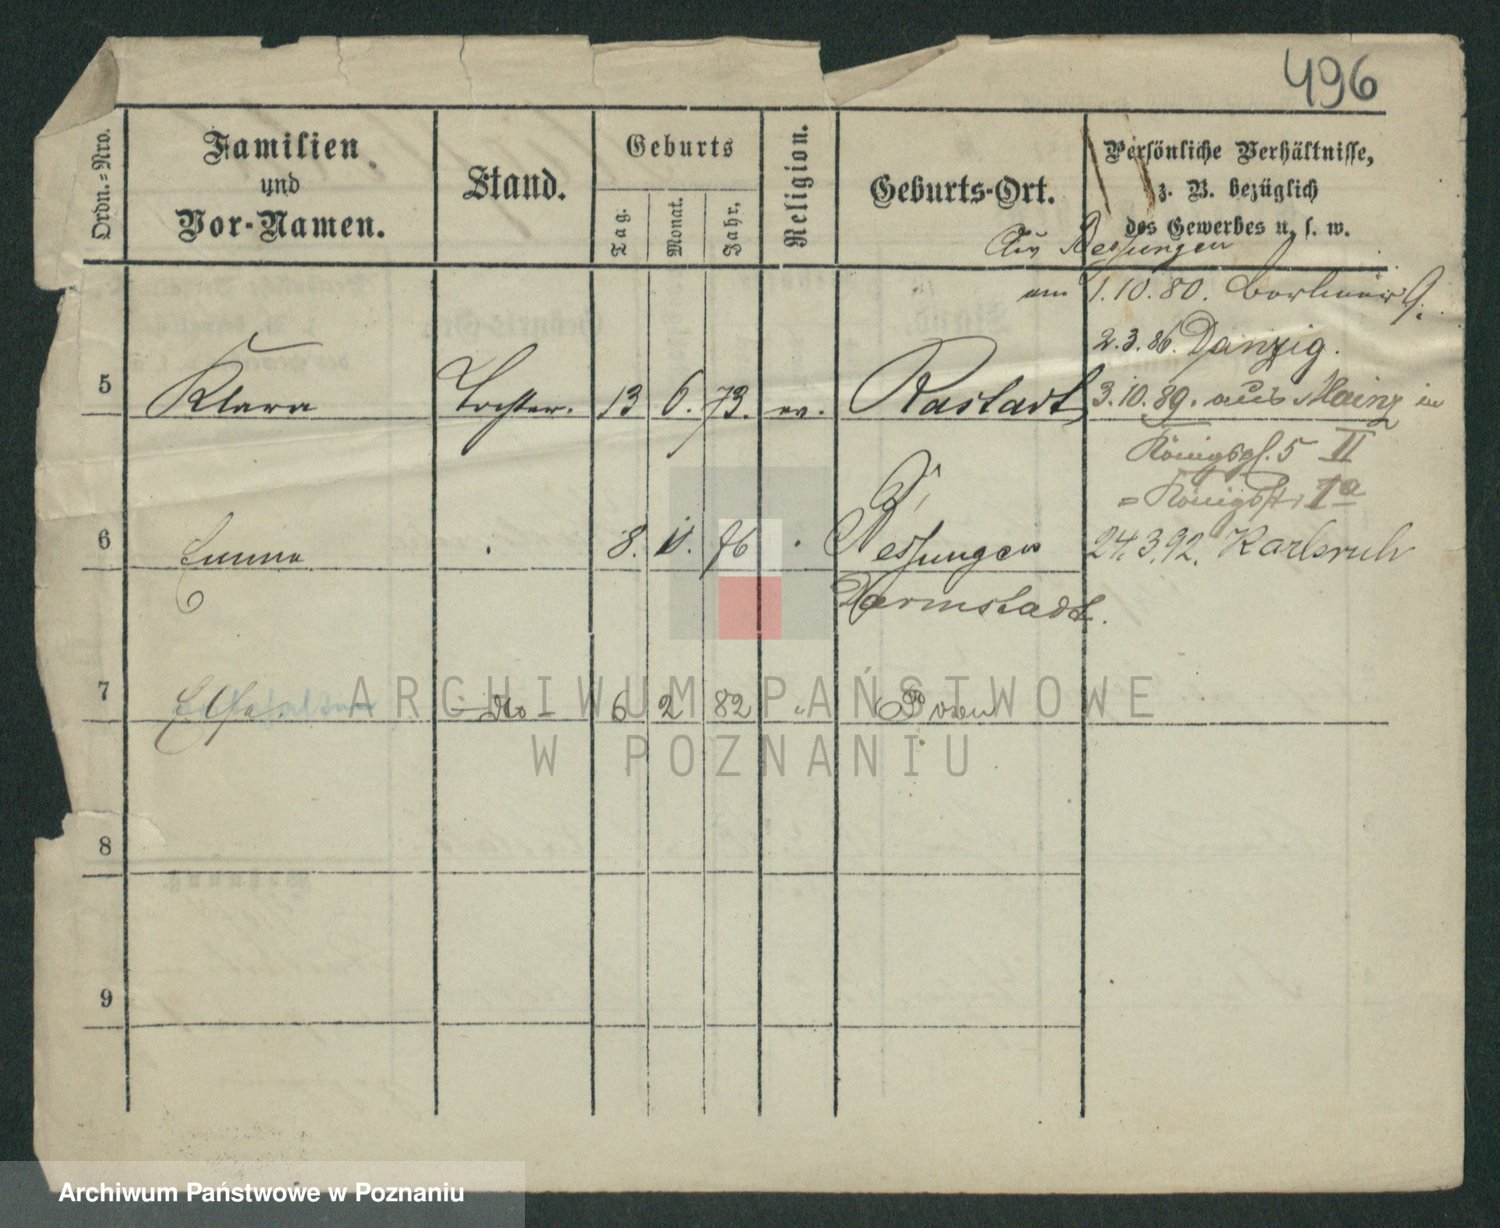 496
Ordn.=Nro.
Familien
und
Vor-Namen.
Stand.
Geburts
Tag.
Monat.
Jahr.
Religion.
Geburts-Ort.
Persönliche Verhältnisse,
z. B. bezüglich
des Gewerbes u. s. w.
Aus Bessungen
am 1.10.80.
2.3.86. Danzig.
5 Klara Tochter. 13 6. 73. ev. Rastadt 3.10.89. aus Mainz in
Königspl. 5 II
= Königsstr. 1a
6 Emma 8. 76 Bessungen 24.3.92. Karlsruh
Darmstadt.
7 Elsa. - dto - 6 2 82 " Posen
8
9
ARCHIWUM PAŃSTWOWE
W POZNANIU
Archiwum Państwowe w Poznaniu